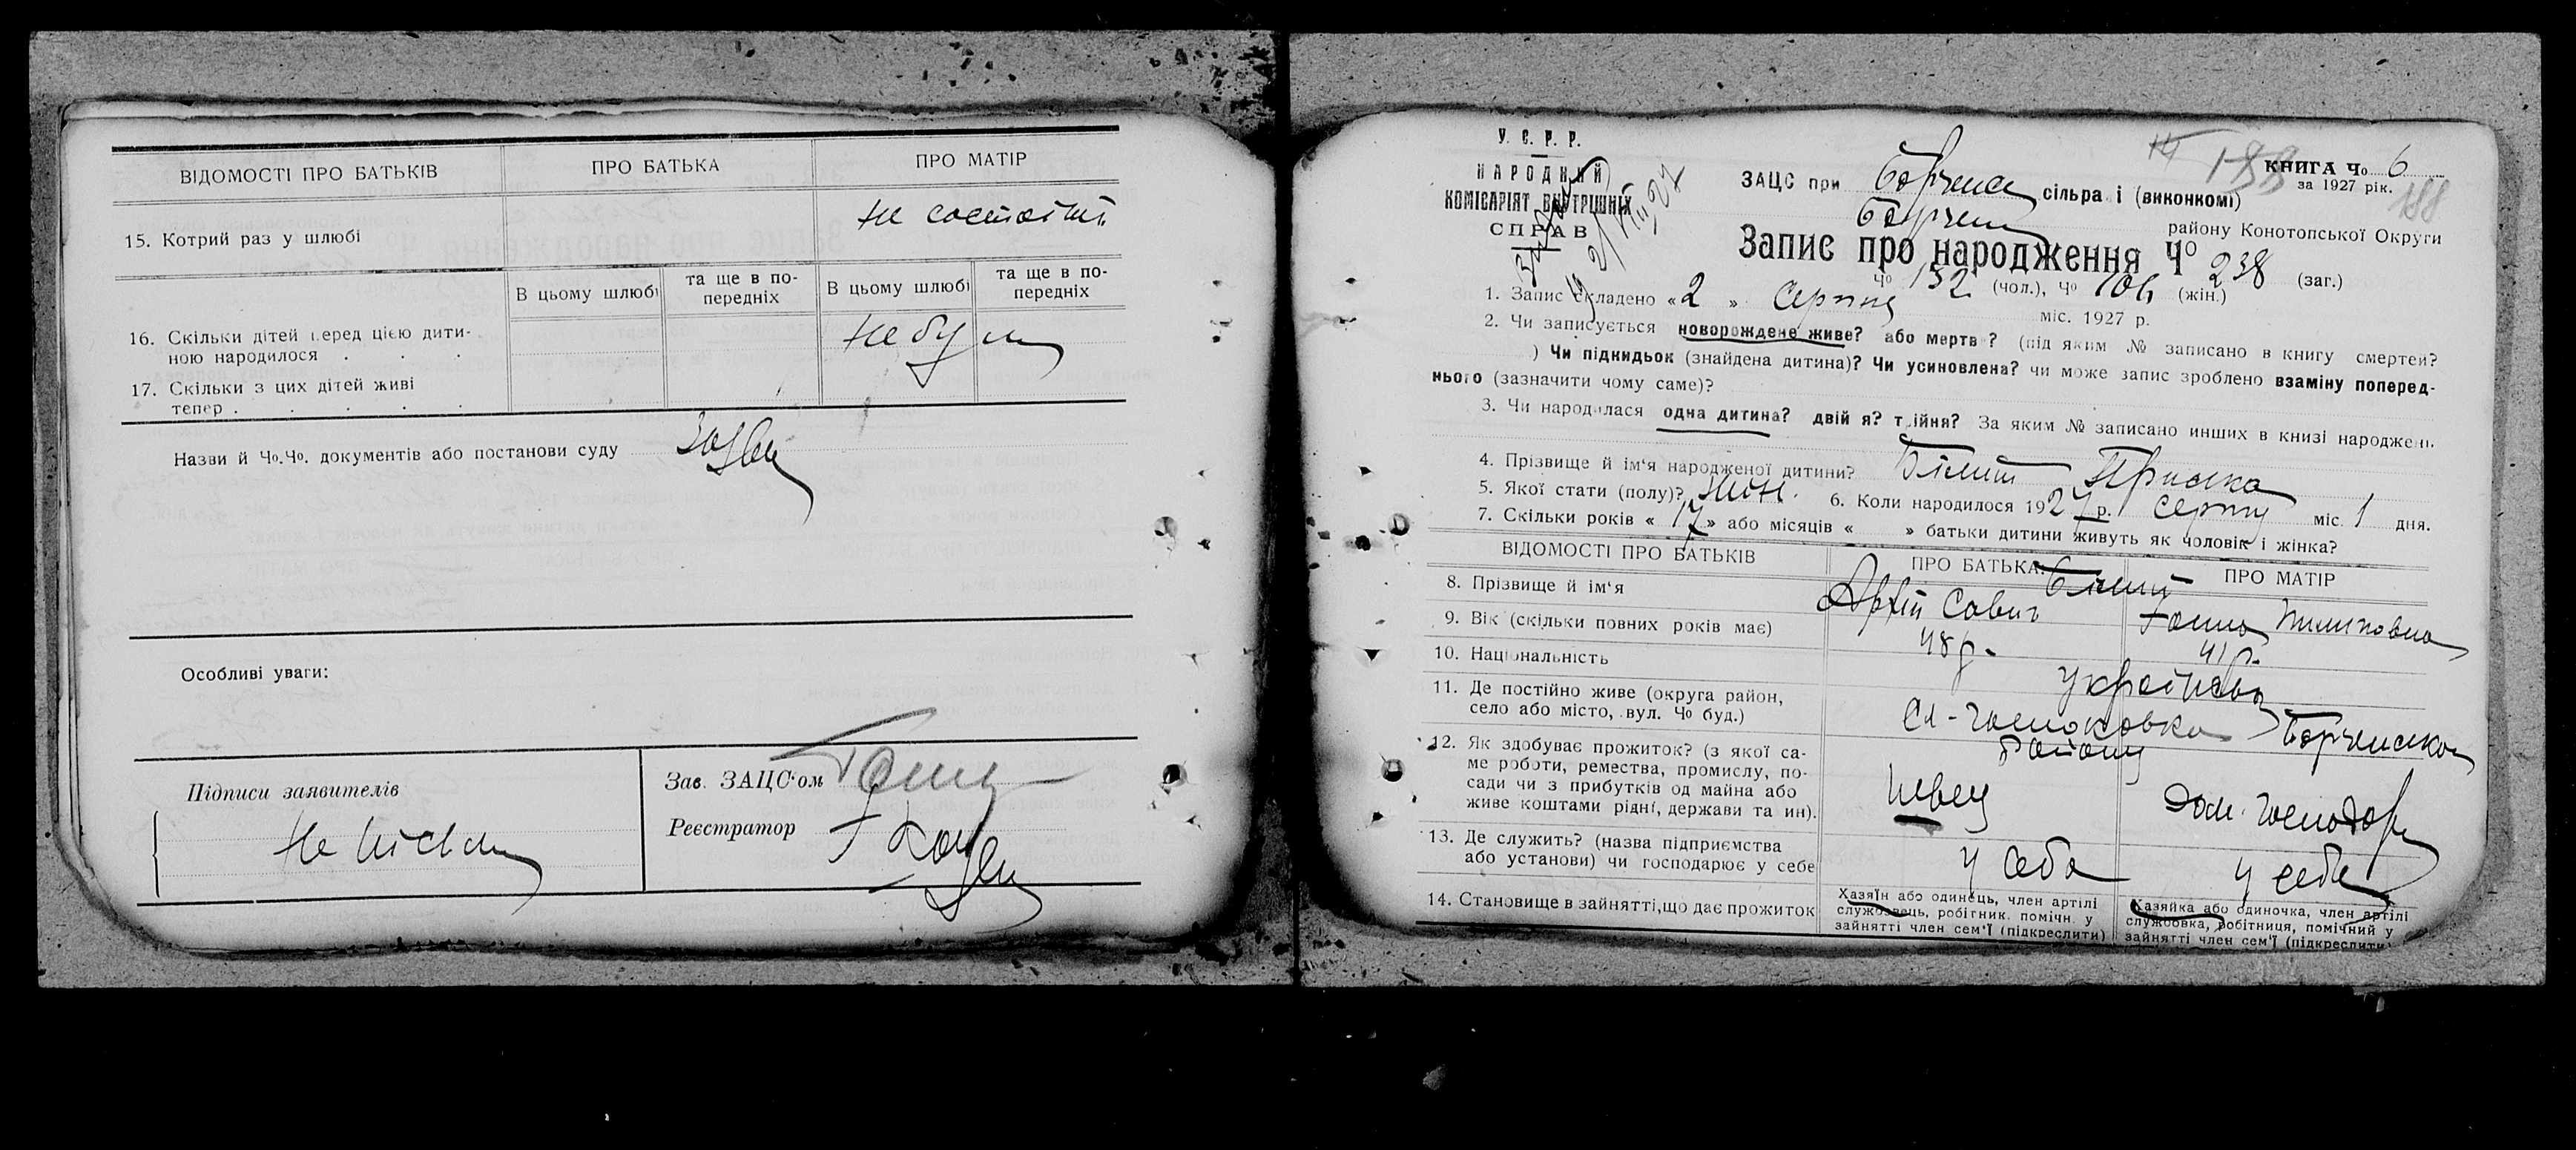 ВІДОМОСТІ ПРО БАТЬКІВ
ПРО БАТЬКА
ПРО МАТІР
15. Котрий раз у шлюбі
не состоїть
В цьому шлюбі
та ще в попередніх
В цьому шлюбі
та ще в попередніх
16. Скільки дітей перед цією дити-
ною народилося . . .
Не були
17. Скільки з цих дітей живі
тепер . . . . .
Назви й Чо.Чо. документів або постанови суду
Особливі уваги:
Підписи заявителів
Зав. ЗАЦС'ом
Реєстратор
У. С. Р. Р.
НАРОДНИЙ
КОМІСАРІЯТ ВНУТРІШНІХ
СПРАВ
ЗАЦС при сільраді (виконкомі)
КНИГА Чо 6
за 1927 рік.
188
району Конотопської Округи
Запис про народження Чо 238 (заг.)
Чо 132 (чол.), Чо 106 (жін.)
1. Запис складено «2» Серпня міс. 1927 р.
2. Чи записується новорождене живе? або мертве? (під яким № записано в книгу смертей?
) Чи підкидьок (знайдена дитина)? Чи усиновлена? чи може запис зроблено взаміну поперед-
нього (зазначити чому саме)?
3. Чи народилася одна дитина? двійня? трійня? За яким № записано инших в книзі народжень
4. Прізвище й ім'я народженої дитини? Приска
5. Якої стати (полу)? жін. 6. Коли народилося 1927 р. серпня міс. 1 дня.
7. Скільки років «17» або місяців « » батьки дитини живуть як чоловік і жінка?
ВІДОМОСТІ ПРО БАТЬКІВ
ПРО БАТЬКА
ПРО МАТІР
8. Прізвище й ім'я
Архіп Савич
Ганна Пилиповна
9. Вік (скільки повних років має)
48 р.
41 р.
10. Національність
Українець
11. Де постійно живе (округа район,
село або місто, вул. Чо буд.)
району
12. Як здобуває прожиток? (з якої са-
ме роботи, ремества, промислу, по-
сади чи з прибутків од майна або
живе коштами рідні, держави та ин).
швець
Дом. господар
13. Де служить? (назва підприємства
або установи) чи господарює у себе
У себе
у себе
14. Становище в зайнятті, що дає прожиток
Хазяїн або одинець, член артілі
службовець, робітник. помічн. у
зайнятті член сем'ї (підкреслити)
Хазяйка або одиночка, член артілі
службовка, робітниця, помічний у
зайнятті член сем'ї (підкреслити)